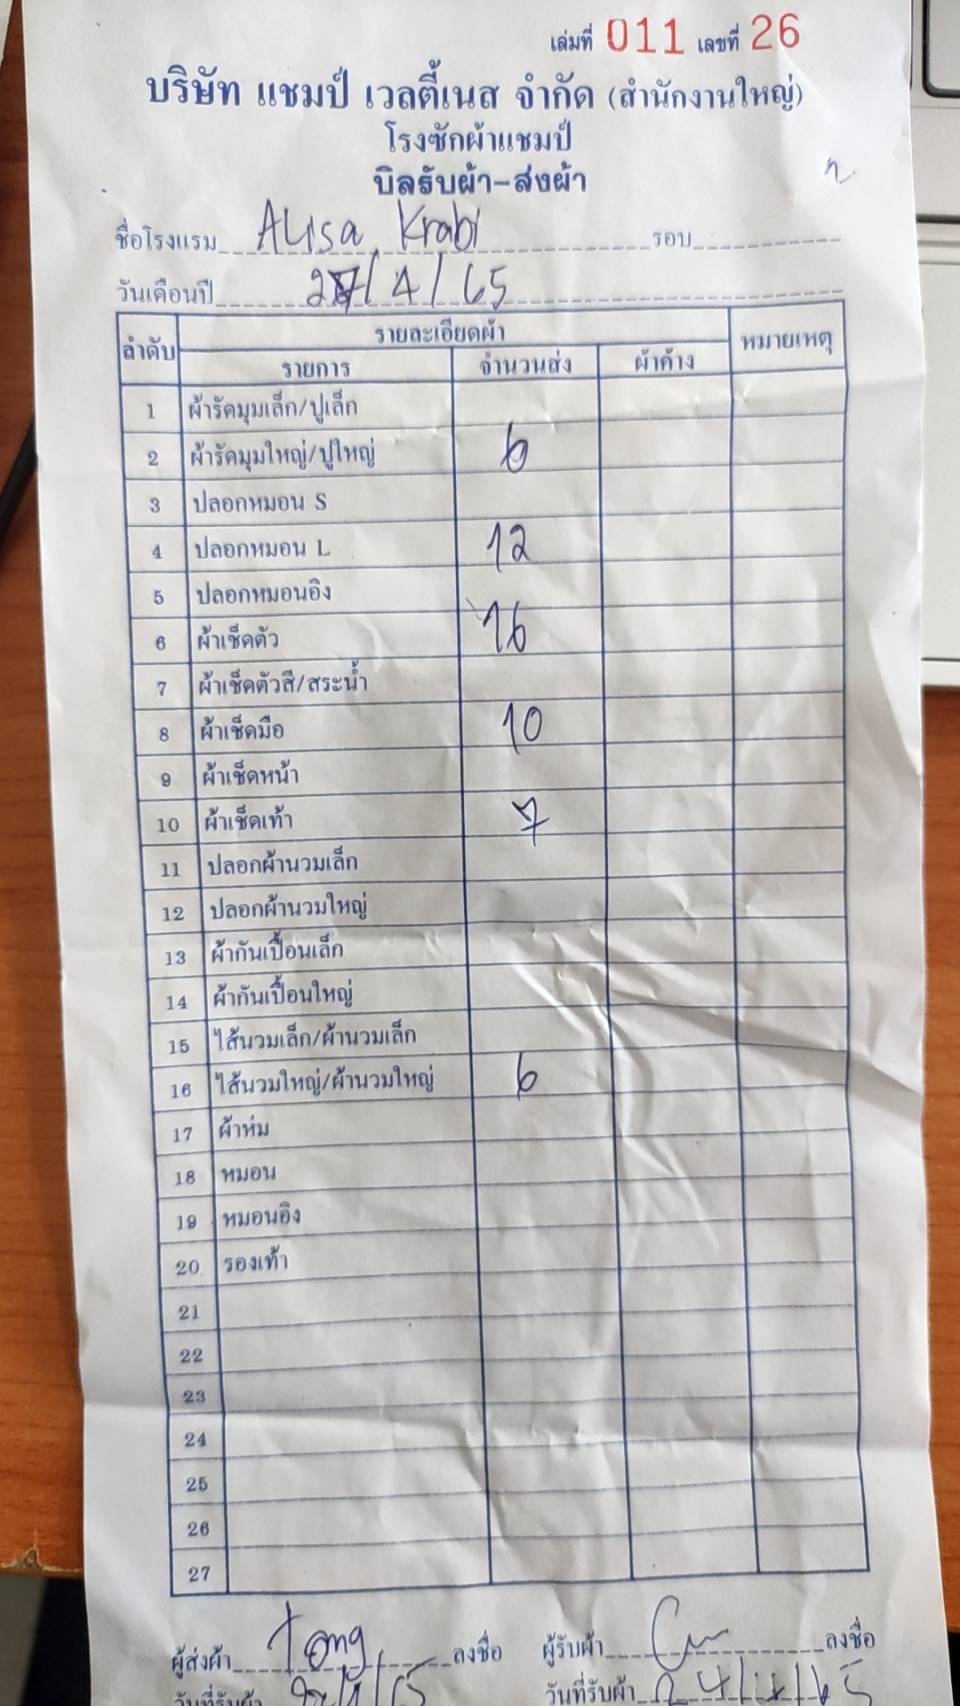 เล่มที่ 011 เลขที่ 26
บริษัท แชมป์ เวลตี้เนส จำกัด (สำนักงานใหญ่)
โรงซักผ้าแชมป์
บิลรับผ้า-ส่งผ้า
ชื่อโรงแรม Alisa Krabi รอบ
วันเดือนปี 27/4/65
ลำดับ รายละเอียดผ้า หมายเหตุ
รายการ จำนวนส่ง ผ้าค้าง
1 ผ้ารัดมุมเล็ก/ปูเล็ก
2 ผ้ารัดมุมใหญ่/ปูใหญ่ 6
3 ปลอกหมอน S
4 ปลอกหมอน L 12
5 ปลอกหมอนอิง
6 ผ้าเช็ดตัว 16
7 ผ้าเช็ดตัวสี/สระน้ำ
8 ผ้าเช็ดมือ 10
9 ผ้าเช็ดหน้า
10 ผ้าเช็ดเท้า 7
11 ปลอกผ้านวมเล็ก
12 ปลอกผ้านวมใหญ่
13 ผ้ากันเปื้อนเล็ก
14 ผ้ากันเปื้อนใหญ่
15 ไส้นวมเล็ก/ผ้านวมเล็ก
16 ไส้นวมใหญ่/ผ้านวมใหญ่ 6
17 ผ้าห่ม
18 หมอน
19 หมอนอิง
20 รองเท้า
21
22
23
24
25
26
27
ผู้ส่งผ้า Tong ลงชื่อ ผู้รับผ้า ลงชื่อ
วันที่รับผ้า วันที่รับผ้า